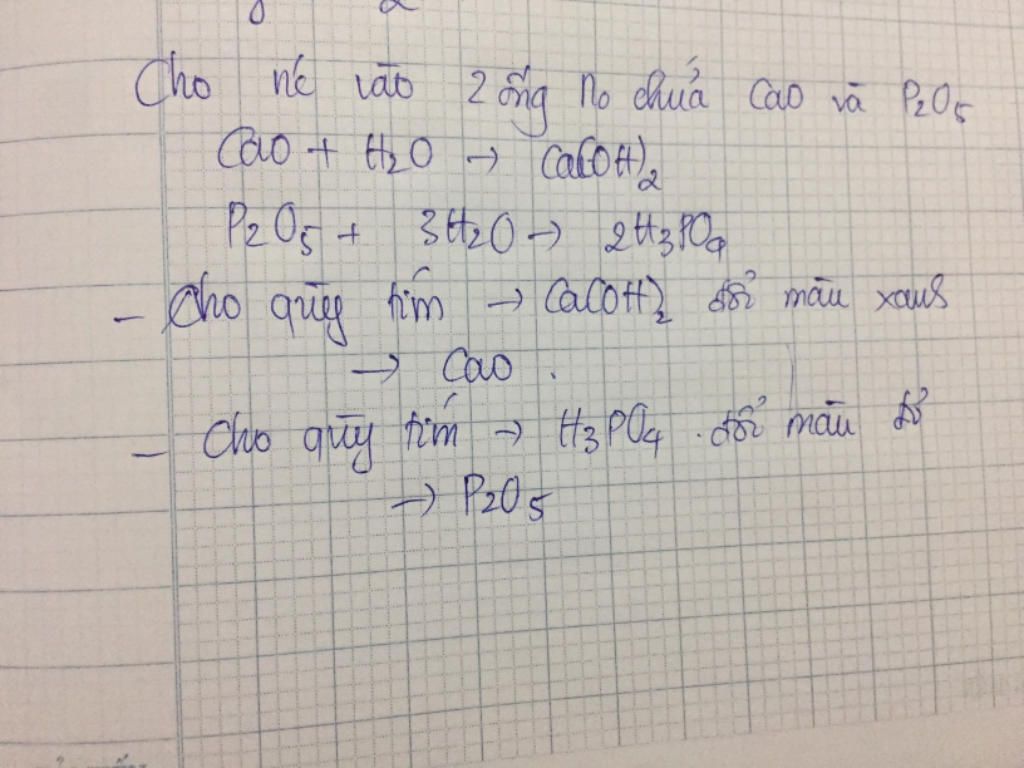 Cho nc vào 2 ống no chứa CaO và P2O5
CaO + H2O → Ca(OH)2
P2O5 + 3H2O → 2H3PO4
- Cho qùy tím → Ca(OH)2 đổi màu xanh
→ CaO .
- Cho qùy tím → H3PO4 . đổi màu đỏ
→ P2O5